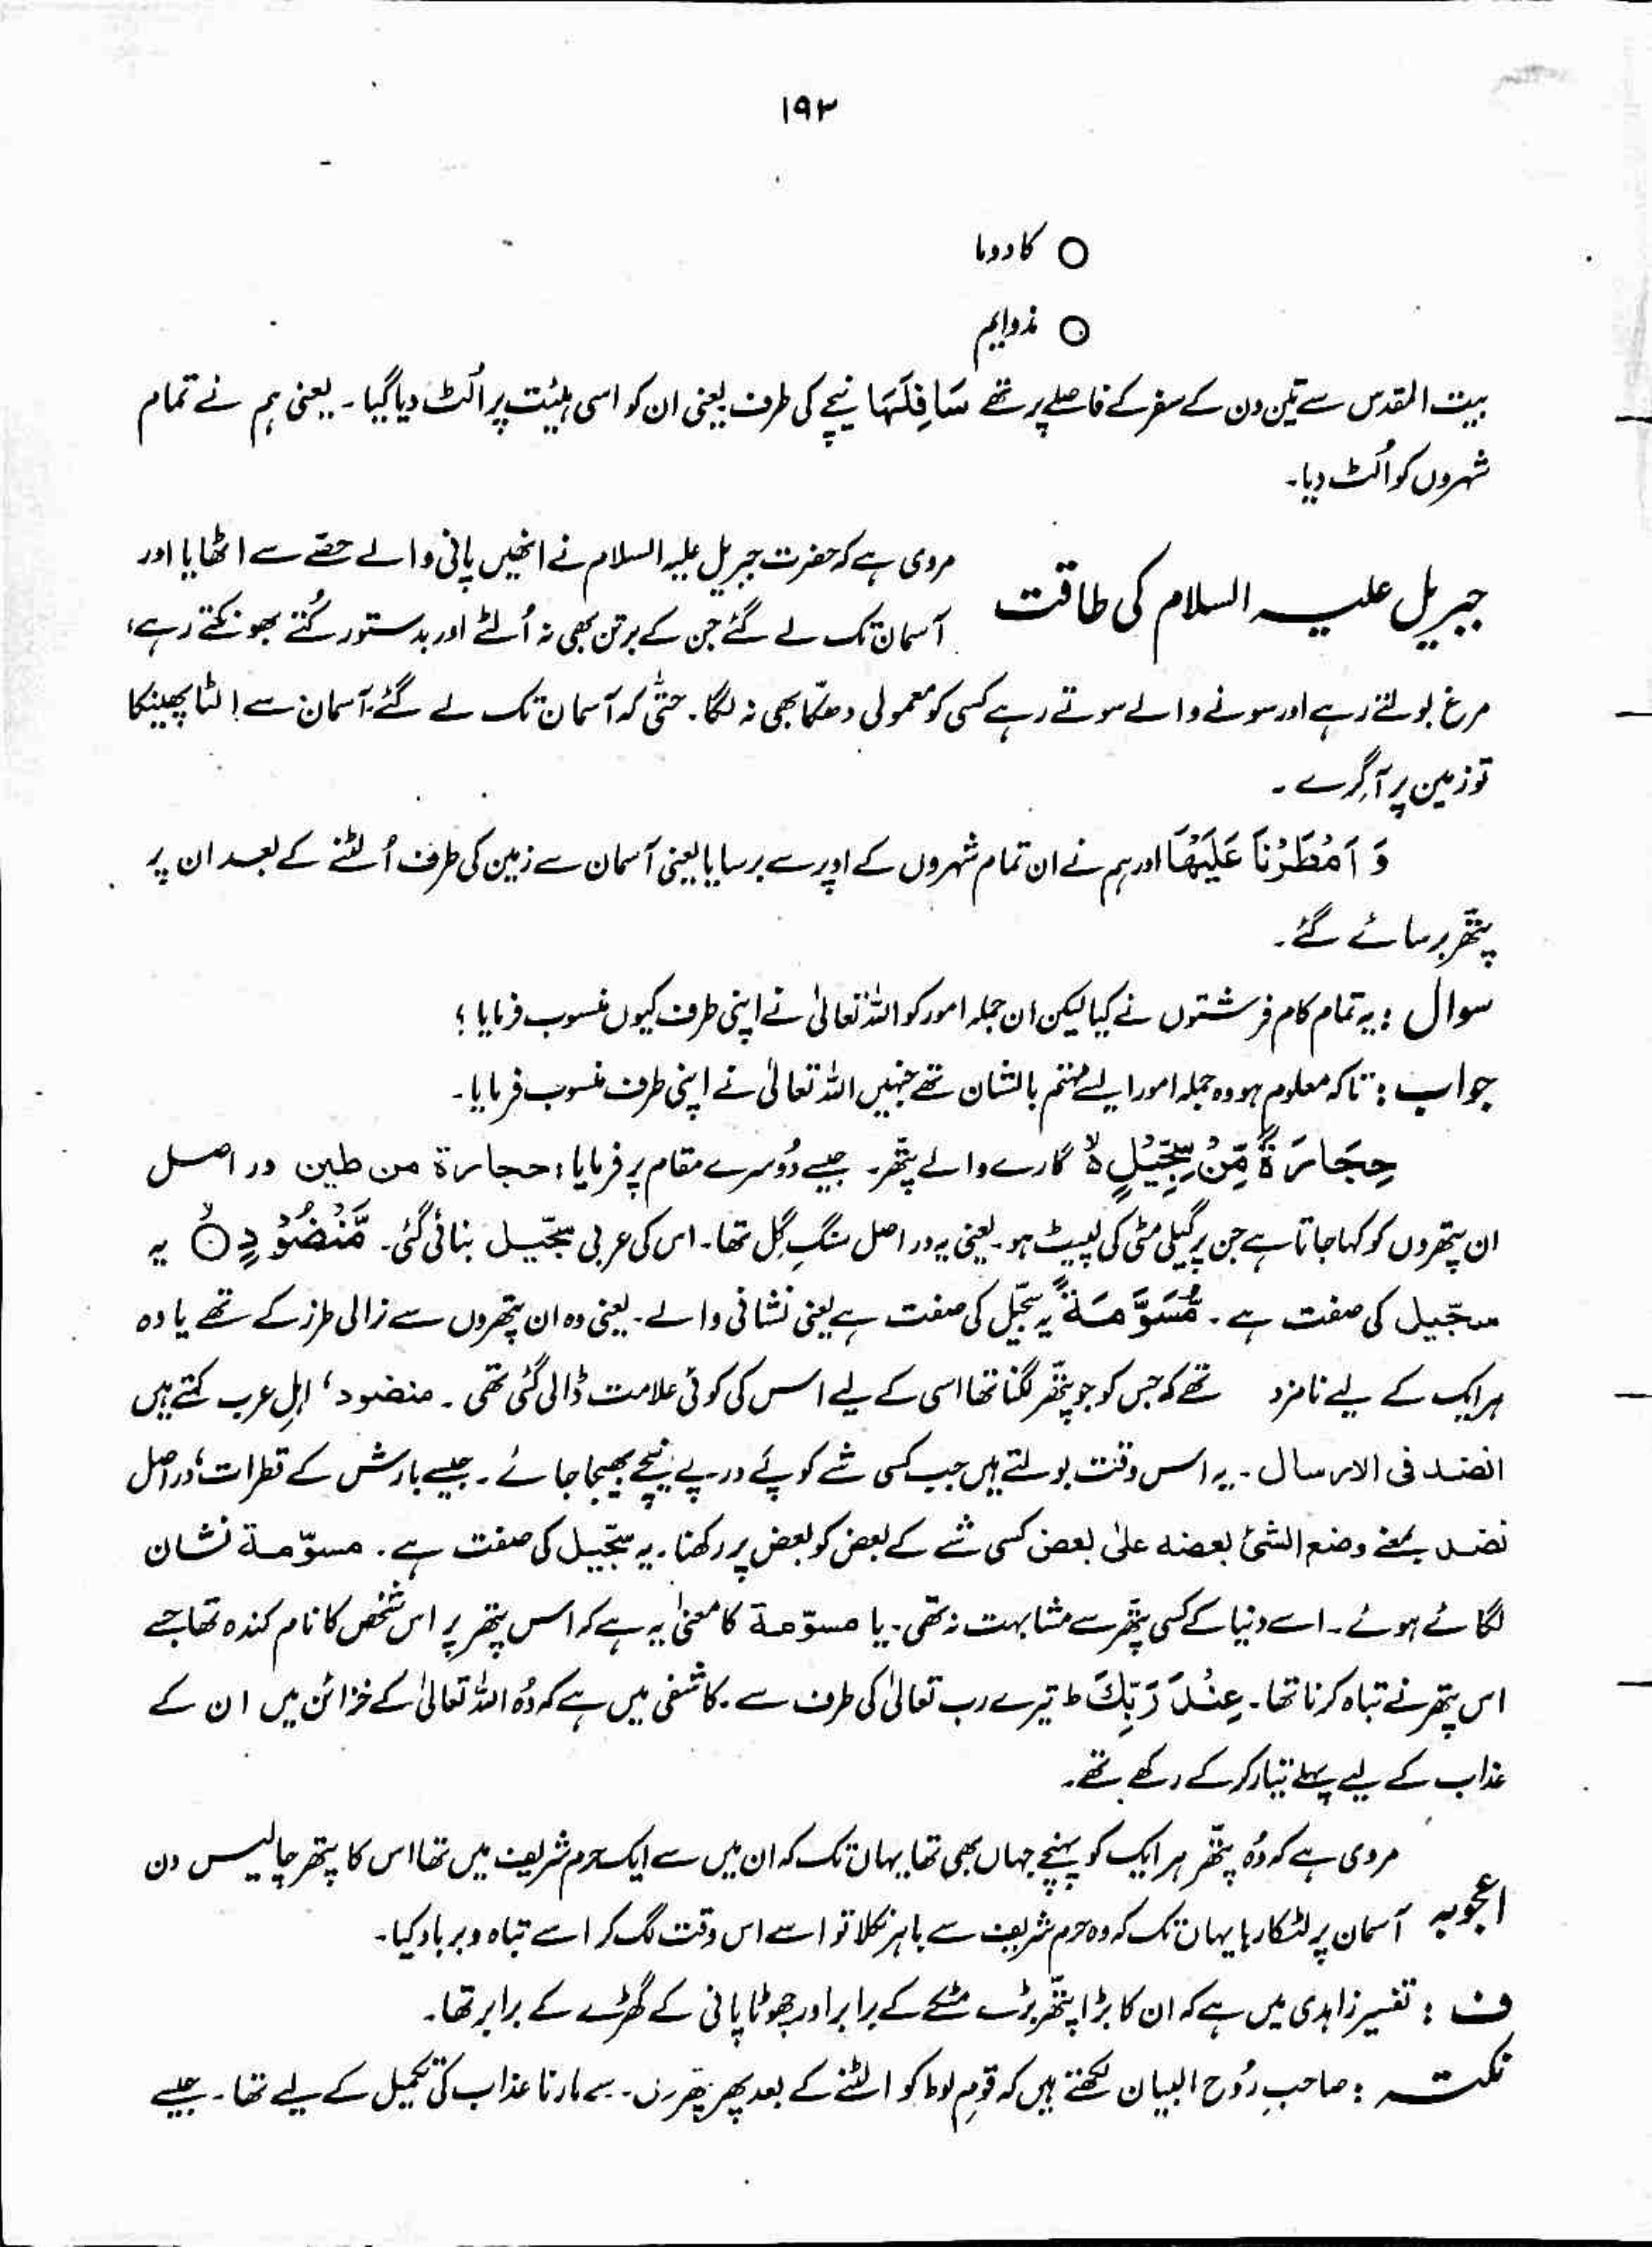 ۱۹۲
○ کادوما
○ مذوایم
بیت المقدس سے تین دن کے سفر کے فاصلے پر تھے سَافِلَهَا نیچے کی طرف یعنی ان کو اسی ہیئت پر اُلٹ دیا گیا۔ یعنی ہم نے تمام
شہروں کو اُلٹ دیا۔
جبریل علیہ السلام کی طاقت
مروی ہے کہ حضرت جبریل علیہ السلام نے انھیں پانی والے حصّے سے اٹھایا اور
آسمان تک لے گئے جن کے برتن بھی نہ اُلٹے اور بدستور کُتّے بھونکتے رہے،
مرغ بولتے رہے اور سونے والے سوتے رہے کسی کو معمولی دھکّا بھی نہ لگا۔ حتّٰی کہ آسمان تک لے گئے آسمان سے الٹا پھینکا
تو زمین پر آگِرے۔
وَ اَمْطَرْنَا عَلَيْهَا اور ہم نے ان تمام شہروں کے اوپر سے برسایا یعنی آسمان سے زمین کی طرف اُلٹنے کے بعد ان پر
پتّھر برسائے گئے۔
سوال : یہ تمام کام فرشتوں نے کیا لیکن ان جملہ امور کو اللہ تعالٰی نے اپنی طرف کیوں منسوب فرمایا ؟
جواب : تاکہ معلوم ہو وہ جملہ امور ایسے مہتم بالشان تھے جنہیں اللہ تعالٰی نے اپنی طرف منسوب فرمایا۔
حِجَارَةً مِّنْ سِجِّيْلٍ ۙ گارے والے پتّھر۔ جیسے دُوسرے مقام پر فرمایا : حجارة من طین در اصل
ان پتھروں کو کہا جاتا ہے جن پر گیلی مٹی کی لپیٹ ہو۔ یعنی یہ در اصل سنگِ گِل تھا۔ اس کی عربی سجّیل بنائی گئی۔ مَّنْضُوْدٍ ۙ یہ
سجّیل کی صفت ہے۔ مُّسَوَّمَةً یہ سجّیل کی صفت ہے یعنی نشانی والے۔ یعنی وہ ان پتھروں سے نرالی طرز کے تھے یا وہ
ہر ایک کے لیے نامزد تھے کہ جس کو جو پتّھر لگنا تھا اسی کے لیے اس کی کوئی علامت ڈالی گئی تھی۔ منضود، اہلِ عرب کہتے ہیں
انضد فی الارسال۔ یہ اس وقت بولتے ہیں جب کسی شے کو پے در پے نیچے بھیجا جائے۔ جیسے بارش کے قطرات، در اصل
نضد بمعنے وضع الشئ بعضه علیٰ بعض کسی شے کے بعض کو بعض پر رکھنا۔ یہ سجّیل کی صفت ہے۔ مسوّمة نشان
لگائے ہوئے۔ اسے دنیا کے کسی پتّھر سے مشابہت نہ تھی۔ یا مسوّمة کا معنیٰ یہ ہے کہ اس پتھر پر اس شخص کا نام کندہ تھا جسے
اس پتھر نے تباہ کرنا تھا۔ عِنْدَ رَبِّكَ ط تیرے رب تعالیٰ کی طرف سے۔ کاشفی میں ہے کہ وُہ اللہ تعالیٰ کے خزائن میں ان کے
عذاب کے لیے پہلے تیار کر کے رکھے تھے۔
اعجوبہ
مروی ہے کہ وُہ پتّھر ہر ایک کو پہنچے جہاں بھی تھا یہاں تک کہ ان میں سے ایک حرم شریف میں تھا اس کا پتھر چالیس دن
آسمان پر لٹکا رہا یہاں تک کہ وہ حرم شریف سے باہر نکلا تو اسے اس وقت لگ کر اسے تباہ و برباد کیا۔
ف : تفسیر زاہدی میں ہے کہ ان کا بڑا پتّھر بڑے مٹکے کے برابر اور چھوٹا پانی کے گھڑے کے برابر تھا۔
نکتہ : صاحبِ رُوح البیان لکھتے ہیں کہ قومِ لوط کو الٹنے کے بعد پھر پتھروں سے مارنا عذاب کی تکمیل کے لیے تھا۔ جیسے